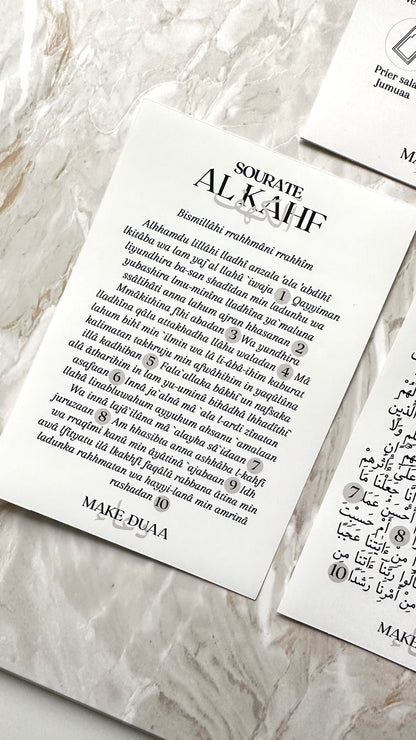 Prier sala
Jumuaa
MA
SOURATE
AL KAHF
الكهف
Bismillâhi rrahhmâni rrahhîm
Alhhamdu lillâhi lladhî anzala 'ala 'abdihî
lkitâba wa lam yaj'al llahâ 'iwaja 1 Qayyiman
liyundhira ba-san shadîdan min ladunhu wa
yubashira lmu-minîna lladhîna ya'maluna
ssâlihâti anna lahum ajran hhasanan 2
Mmâkithîna fîhi abadan 3 Wa yundhira
lladhîna qâlu attakhadha llâhu waladan 4 Mâ
lahum bihî min 'ilmin wa lâ li-âbâ-ihim kaburat
kalimatan takhruju min afwâhihim in yaqûlûna
illâ kadhiban 5 Fala'allaka bâkhi'un nafsaka
alâ âtharihim in lam yu-uminû bihâdhâ lhhadîthi
asafuan 6 Innâ ja'alnâ mâ 'ala l-ardi zînatan
llahâ linabluwahum ayyuhum ahsanu 'amalaan
Wa innâ lajâ'ilûna mâ 'alayha sâ'idaan 7
juruzaan 8 Am hhasibta anna ashhâba l-kahfi
wa rraqîmi kanû min âyâtinâ 'ajabaan 9 Idh
awâ lfityatu ilâ lkakhfi faqâlû rabbana âtina min
ladunka rahhmatan wa hayyi-lanâ min amrinâ
rashadan 10
MAKE DUAA
دعاء
لهم
الذين
ولا
على ءاثرهم
إنا جعلنا ما
عملا 7
8 أم حسبت
من ءايتنا عجبا 9
قالوا ربنا ءاتنا من
من أمرنا رشدا 10
MAK